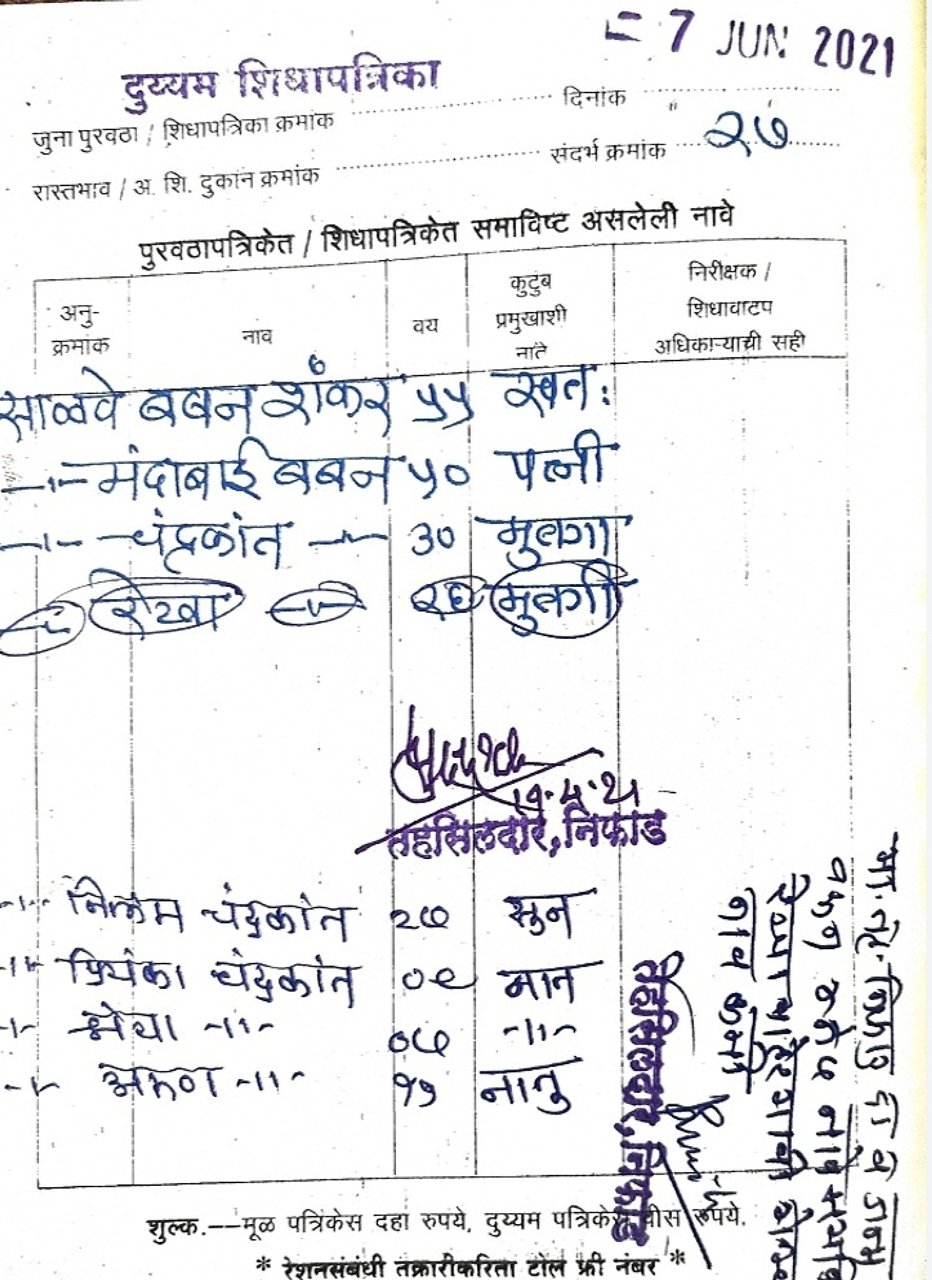 = 7 JUN 2021
दुय्यम शिधापत्रिका
जुना पुरवठा / शिधापत्रिका क्रमांक दिनांक
रास्तभाव / अ. शि. दुकान क्रमांक संदर्भ क्रमांक २७
पुरवठापत्रिकेत / शिधापत्रिकेत समाविष्ट असलेली नावे
अनु-क्रमांक नाव वय कुटुंब प्रमुखाशी नाते निरीक्षक / शिधावाटप अधिकाऱ्याची सही
साळवे बबन शंकर ५५ स्वत:
-"- मंदाबाई बबन ५० पत्नी
-"- चंद्रकांत -"- ३० मुलगा
रेखा -"- २६ मुलगी
तहसिलदार, निफाड
-"- निलम चंद्रकांत २७ सुन
-"- प्रियंका चंद्रकांत ०९ नात
-"- श्रेया -"- ०७ -"-
-"- अरुण -"- नातु
तहसिलदार, निफाड
नाव कमी
शुल्क.--मूळ पत्रिकेस दहा रुपये, दुय्यम पत्रिकेस वीस रुपये.
* रेशनसंबंधी तक्रारीकरिता टोल फ्री नंबर *